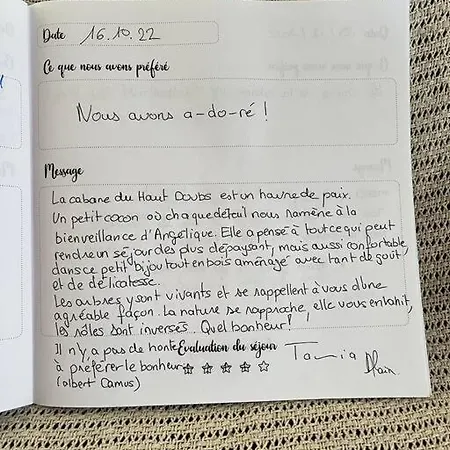 Date 16.10.22
Ce que nous avons préféré
Nous avons a-do-ré !
Message
La cabane du Haut Doubs est un havre de paix.
Un petit cocon où chaque détail nous ramène à la
bienveillance d'Angélique. Elle a pensé à tout ce qui peut
rendre un séjour des plus dépaysant, mais aussi confortable,
dans ce petit bijou tout en bois aménagé avec tant de goût,
et de délicatesse.
Les arbres y sont vivants et se rappellent à vous d'une
agréable façon. La nature se rapproche, elle vous envahit,
les rôles sont inversés. Quel bonheur !
Il n'y a pas de honte
Evaluation du séjour
à préférer le bonheur
(Albert Camus)
Tania
Alain